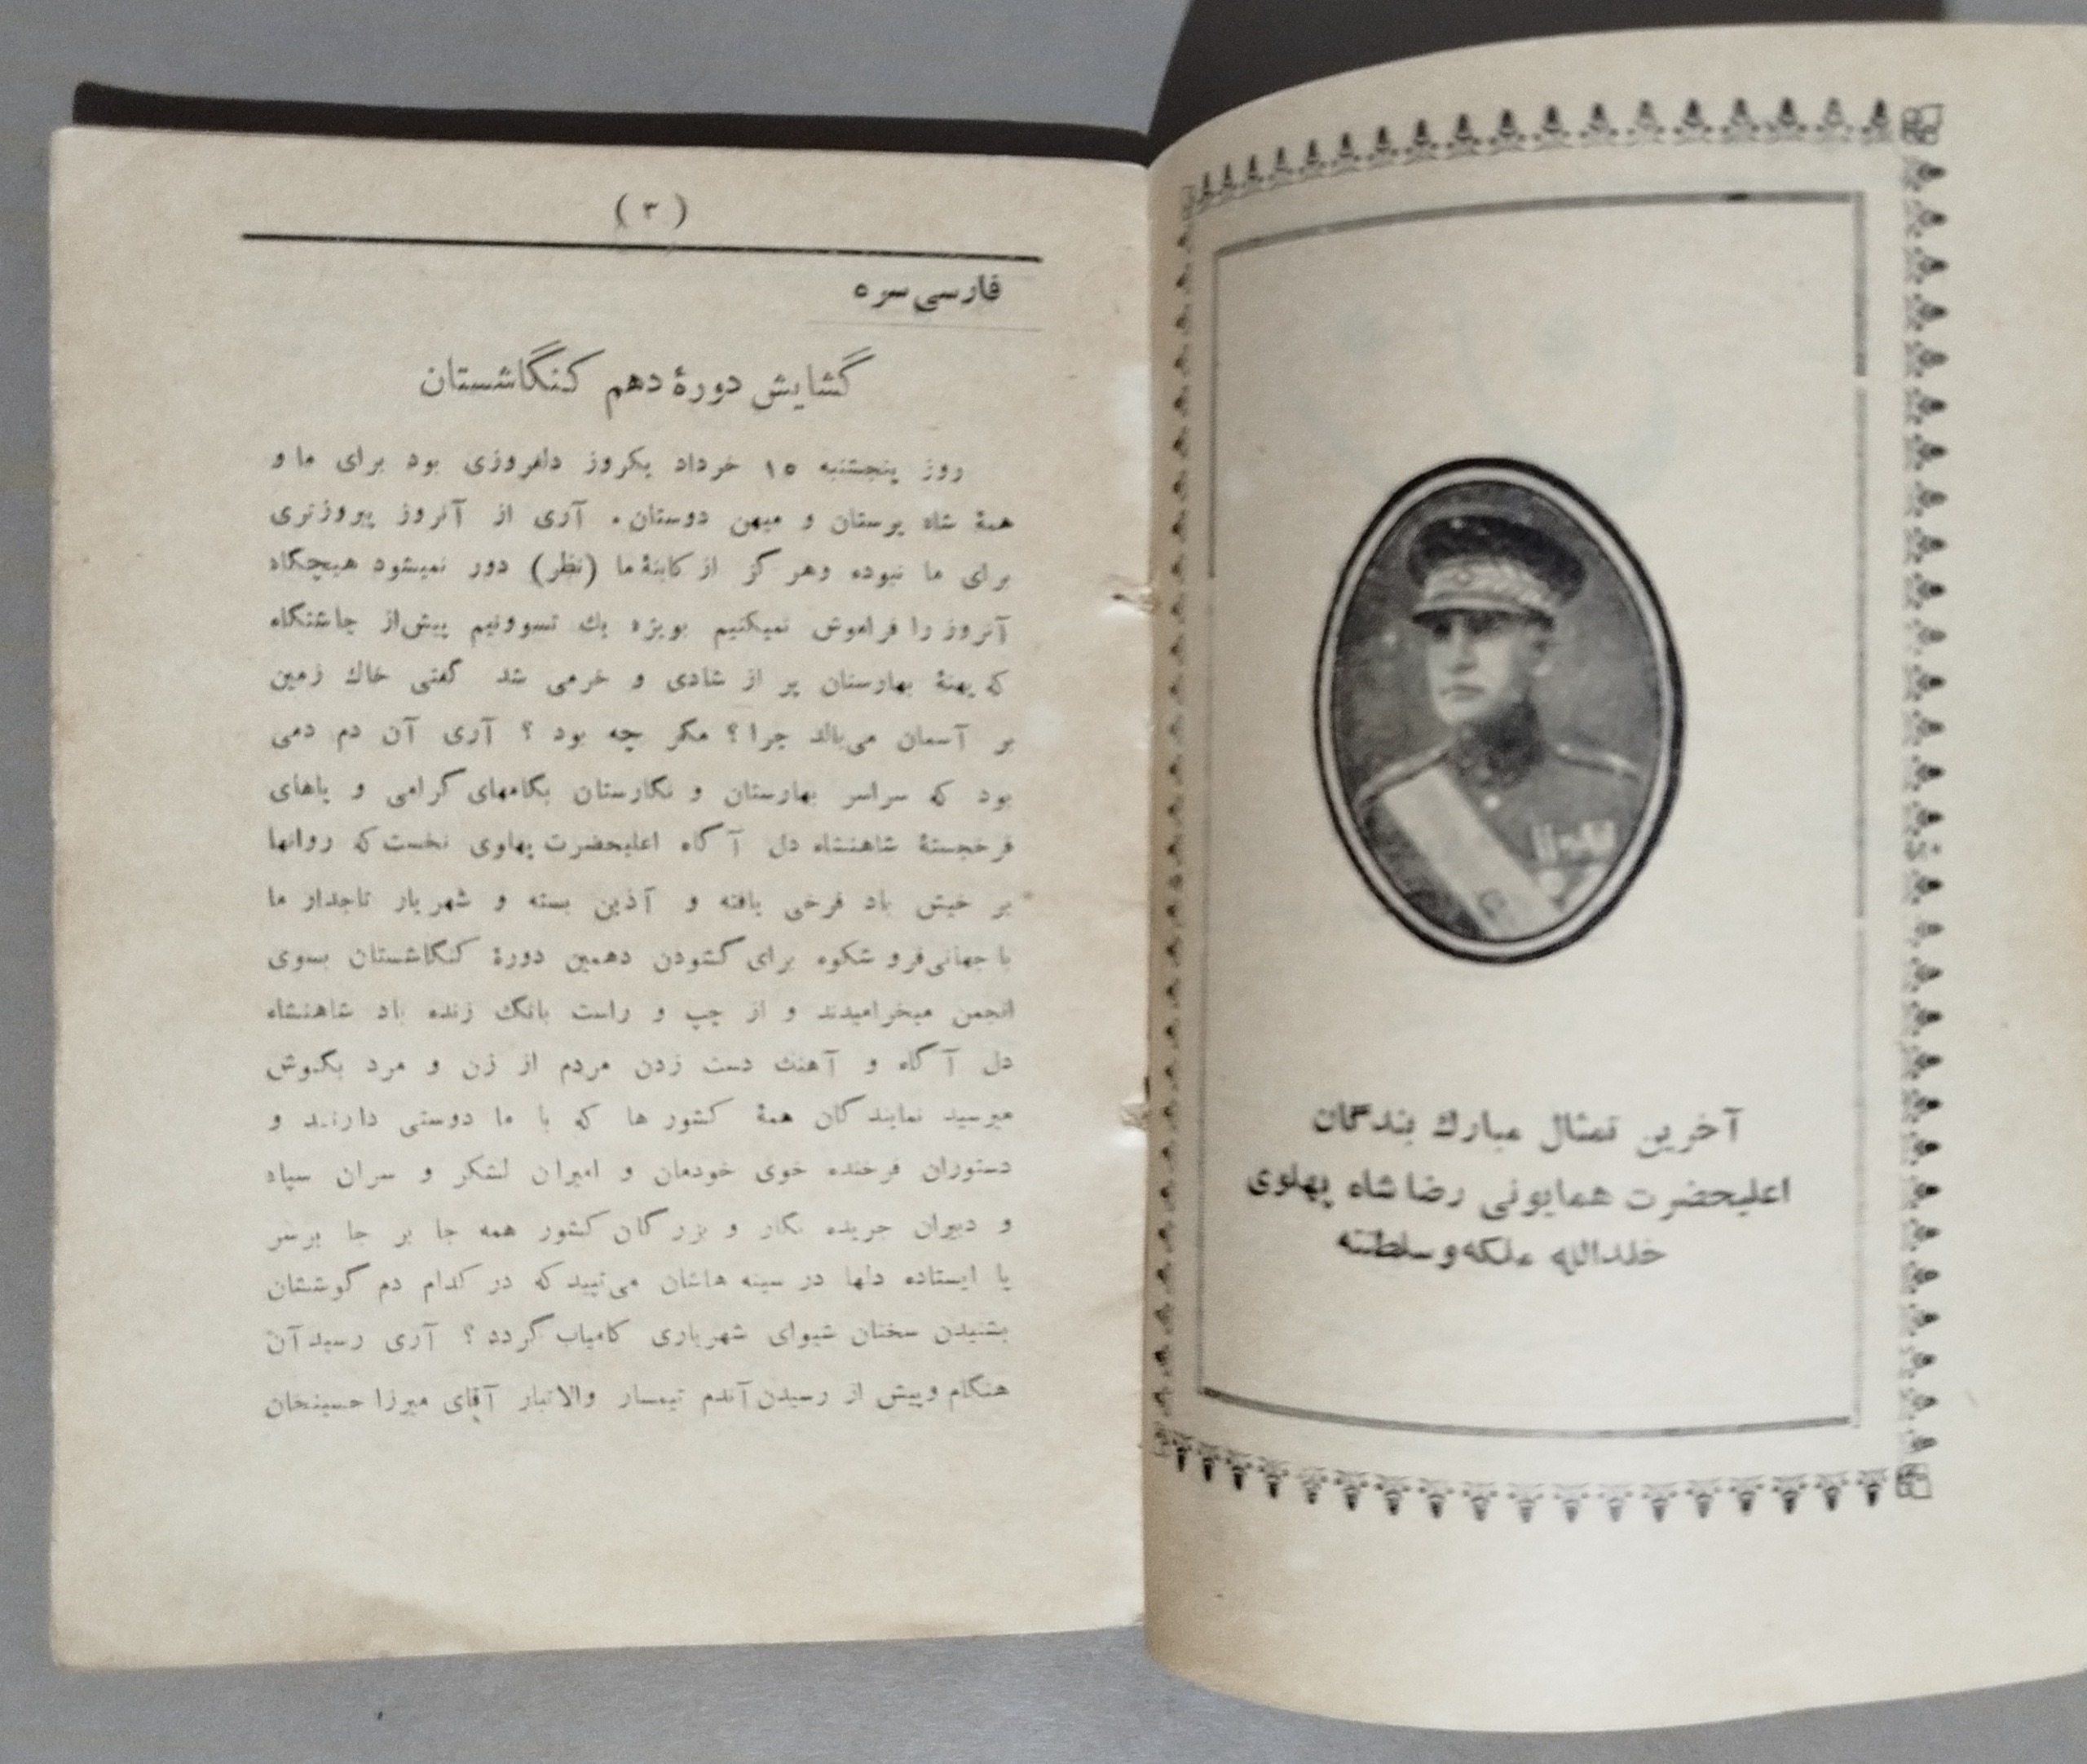 آخرین تمثال مبارك بندگان
اعلیحضرت همایونی رضا شاه پهلوی
خلدالله ملکه و سلطنته
( ۳ )
فارسی سره
گشایش دورهٔ دهم کنگاشستان
روز پنجشنبه ۱۵ خرداد یکروز دلفروزی بود برای ما و
همهٔ شاه پرستان و میهن دوستان. آری از آنروز پیروزتری
برای ما نبوده وهر گز از کابنهٔ ما (نظر) دور نمیشود هیچگاه
آنروز را فراموش نمیکنیم بویژه یك تسوونیم پیش‌از چاشتگاه
که پهنهٔ بهارستان پر از شادی و خرمی شد گفتی خاك زمین
بر آسمان می‌بالد چرا؟ مگر چه بود ؟ آری آن دم دمی
بود که سراسر بهارستان و نگارستان بگامهای گرامی و پاهای
فرخجستهٔ شاهنشاه دل آگاه اعلیحضرت پهلوی نخست که روانها
بر خیش باد فرخی یافته و آذین بسته و شهریار تاجدار ما
با جهانی‌فرو شکوه برای گشودن دهمین دورهٔ کنگاشستان بسوی
انجمن میخرامیدند و از چپ و راست بانگ زنده باد شاهنشاه
دل آگاه و آهنك دست زدن مردم از زن و مرد بگوش
میرسید نمایندگان همهٔ کشور ها که با ما دوستی دارند و
دستوران فرخنده خوی خودمان و امیران لشکر و سران سپاه
و دبیران جریده نگار و بزرگان کشور همه جا بر جا برسر
پا ایستاده دلها در سینه هاشان می‌تپید که در کدام دم گوششان
بشنیدن سخنان شیوای شهریاری کامیاب گردد ؟ آری رسید آن
هنگام وپیش از رسیدن آندم تیمسار والاتبار آقای میرزا حسینخان